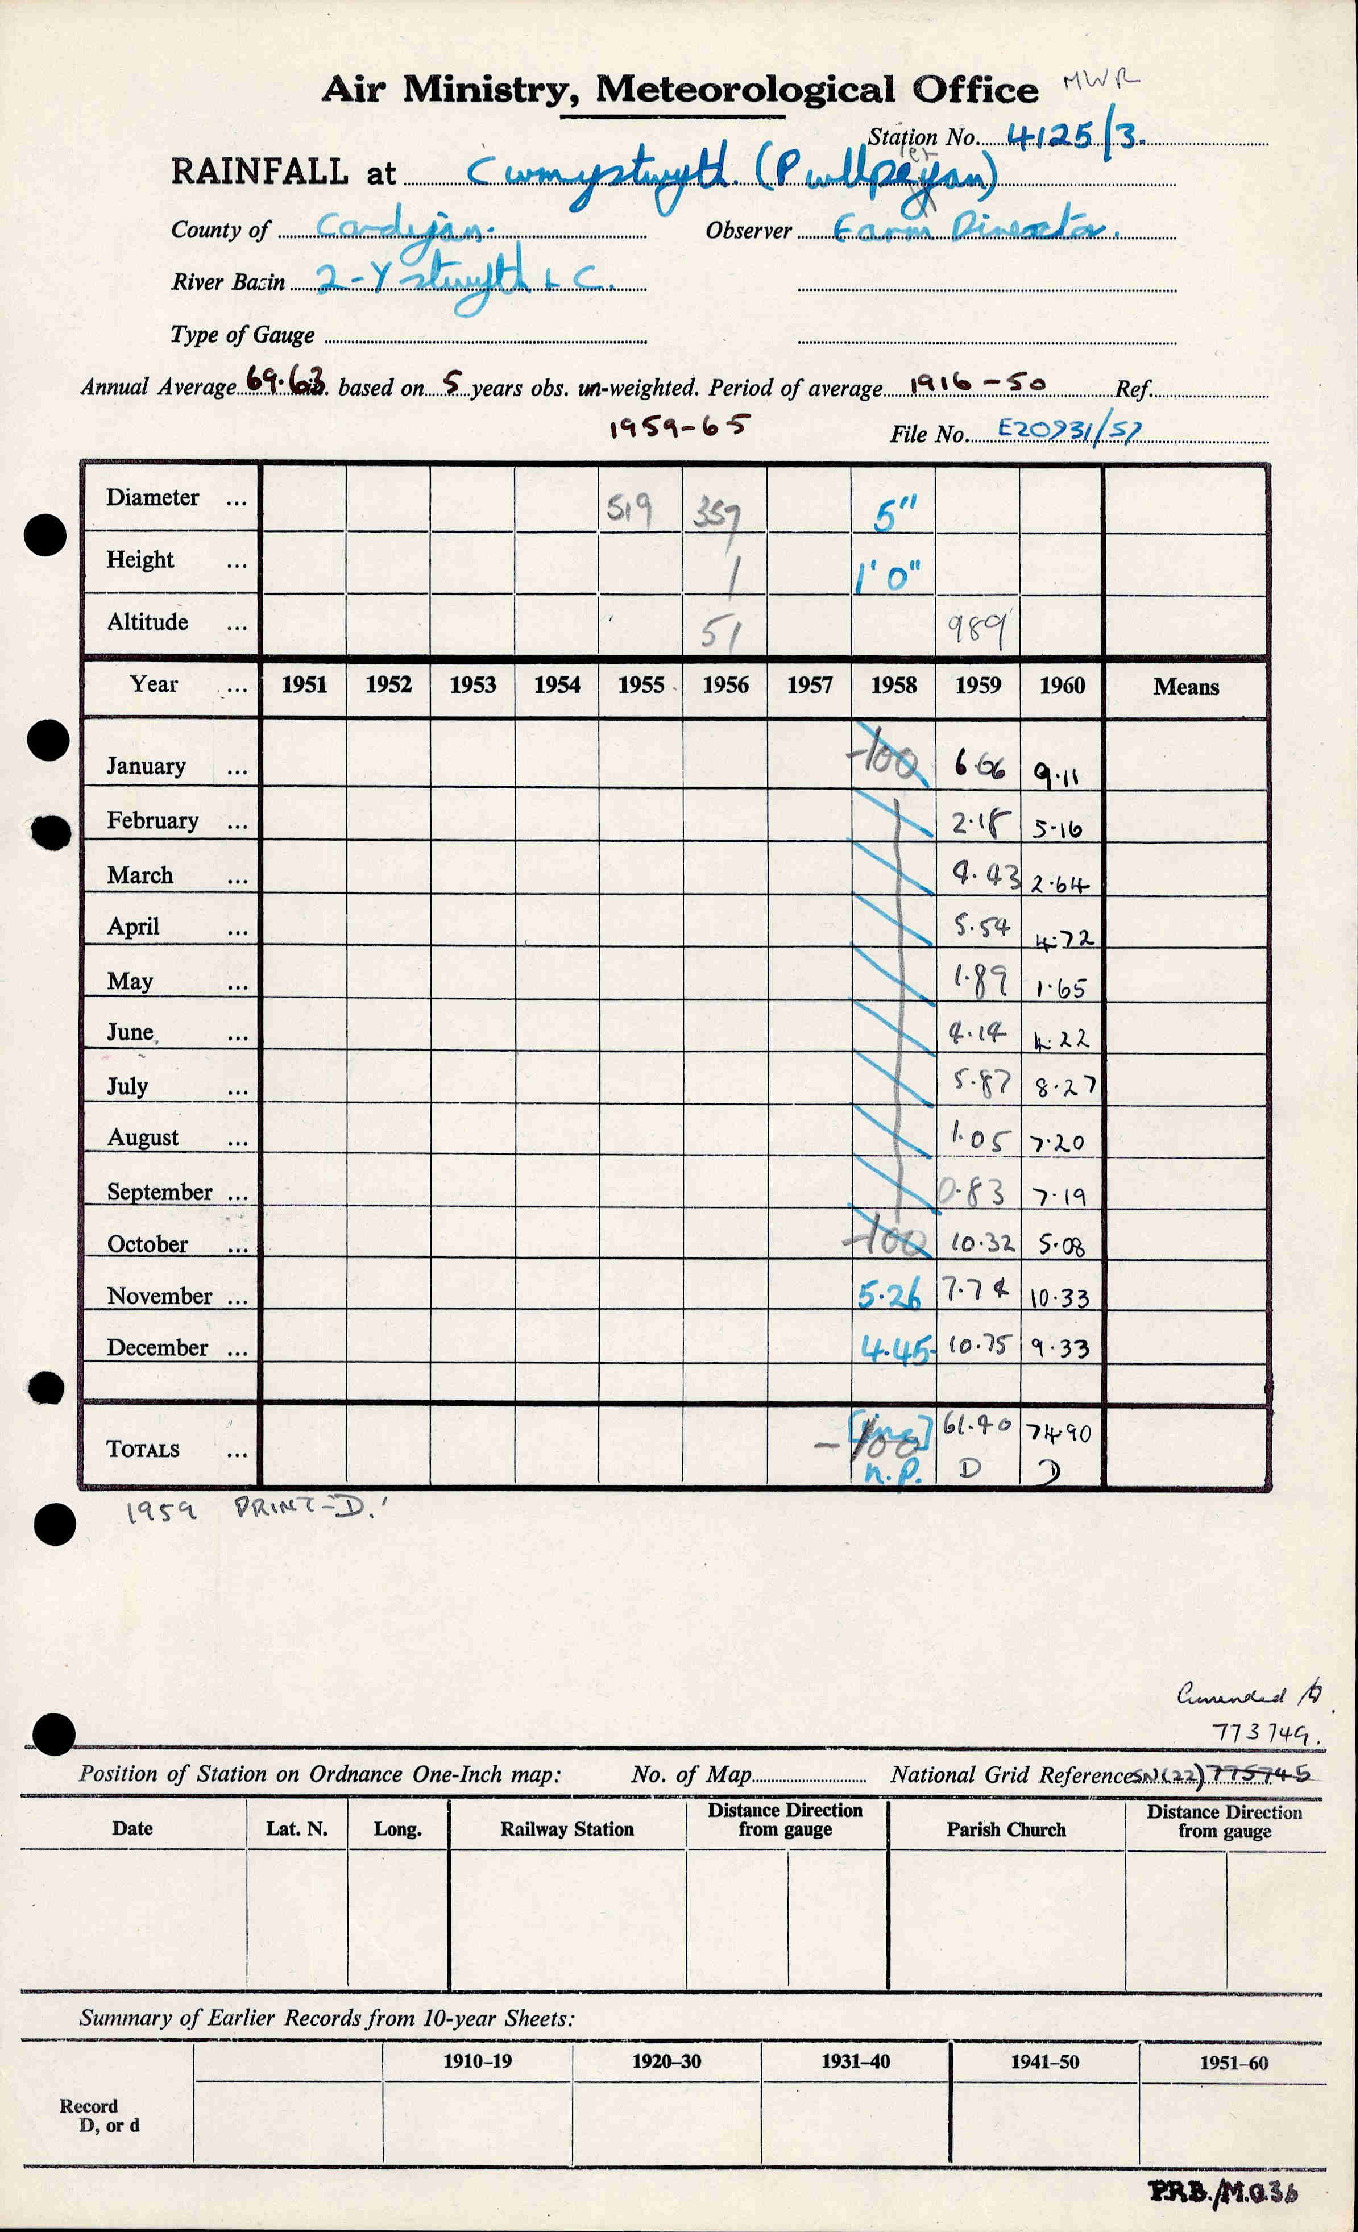 Air Ministry, Meteorological Office MWR
Station No. 4125/3.
er
RAINFALL at Cwmystwyth. (Pwllpeyan)
County of Cardigan. Observer Farm Director.
River Basin 2-Ystwyth & C.
Type of Gauge
Annual Average 69.63 in. based on 5 years obs. un-weighted. Period of average 1916-50 Ref.
1959-65 File No. E20931/57
Diameter ... 519 357 5"
Height ... 1 1'0"
Altitude ... 51 989
Year ... 1951 1952 1953 1954 1955 1956 1957 1958 1959 1960 Means
January ... -100 6.66 9.11
February ... 2.18 5.16
March ... 4.43 2.64
April ... 5.54 4.72
May ... 1.89 1.65
June ... 4.14 4.22
July ... 5.87 8.27
August ... 1.05 7.20
September ... 0.83 7.19
October ... -100 10.32 5.08
November ... 5.26 7.74 10.33
December ... 4.45 10.75 9.33
TOTALS ... -100 [inc] 61.40 74.90
n.p. D D
1959 PRINT-'D.'
Amended to
773749.
Position of Station on Ordnance One-Inch map: No. of Map National Grid Reference SN(22)775745
Date Lat. N. Long. Railway Station Distance Direction from gauge Parish Church Distance Direction from gauge
Summary of Earlier Records from 10-year Sheets:
1910–19 1920–30 1931–40 1941–50 1951–60
Record
D, or d
P.R.B./M.O.36